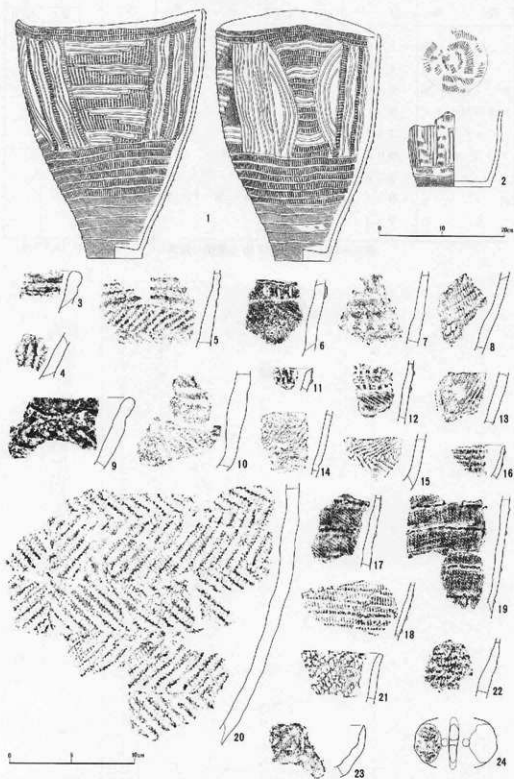 1
2
0 10 20cm
3
5
6
7
8
4
11
12
13
9
10
14
15
16
17
19
18
20
21
22
23
24
0 5 10cm